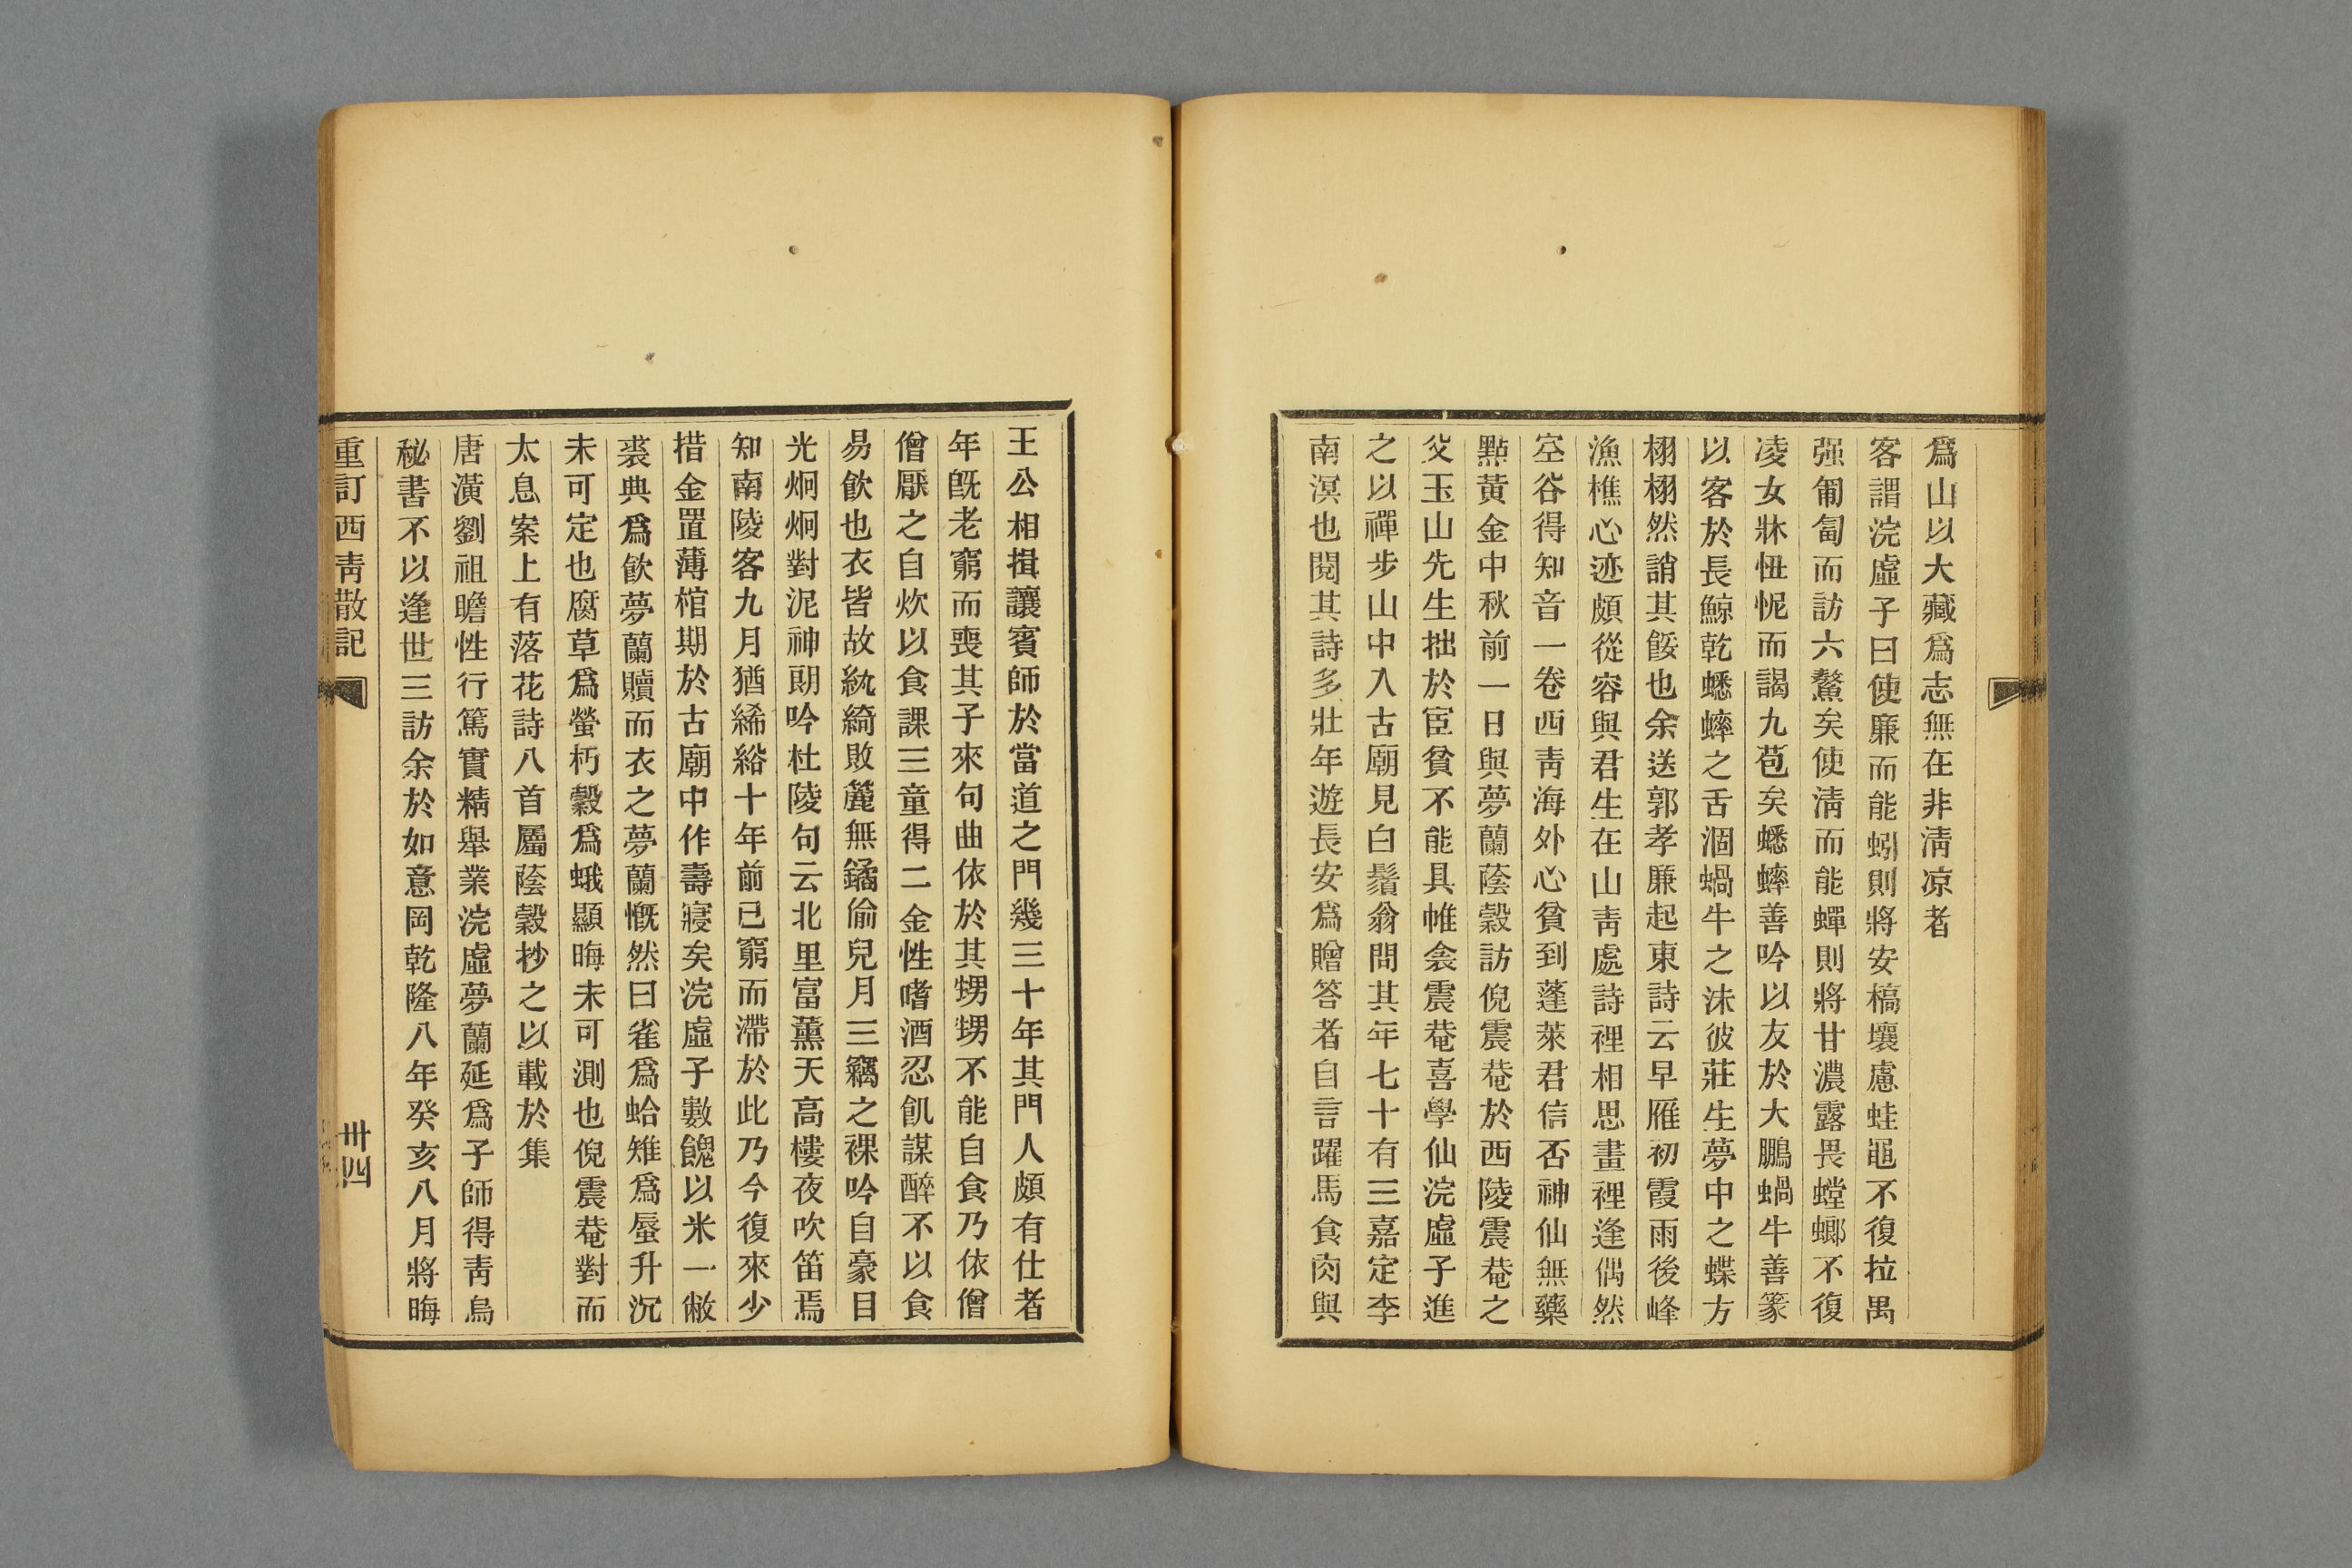 爲山以大藏爲志無在非淸凉者
客謂浣虛子曰使廉而能蚓則將安槁壤慮蛙黽不復拉禺
强匍匐而訪六鰲矣使淸而能蟬則將甘濃露畏螳螂不復
凌女牀忸怩而謁九苞矣蟋蟀善吟以友於大鵬蝸牛善篆
以客於長鯨乾蟋蟀之舌涸蝸牛之沫彼莊生夢中之蝶方
栩栩然誚其餒也余送郭孝廉起東詩云早雁初霞雨後峰
漁樵心迹頗從容與君生在山靑處詩裡相思畫裡逢偶然
空谷得知音一卷西靑海外心貧到蓬萊君信否神仙無藥
點黃金中秋前一日與夢蘭蔭穀訪倪震菴於西陵震菴之
父玉山先生拙於宦貧不能具帷衾震菴喜學仙浣虛子進
之以禪步山中入古廟見白鬚翁問其年七十有三嘉定李
南溟也閱其詩多壯年遊長安爲贈答者自言躍馬食肉與
王公相揖讓賓師於當道之門幾三十年其門人頗有仕者
年旣老窮而喪其子來句曲依於其甥甥不能自食乃依僧
僧厭之自炊以食課三童得二金性嗜酒忍飢謀醉不以食
易飮也衣皆故紈綺敗簏無鐍偷兒月三竊之裸吟自豪目
光炯炯對泥神朗吟杜陵句云北里富薰天高樓夜吹笛焉
知南陵客九月猶絺綌十年前已窮而滯於此乃今復來少
措金置薄棺期於古廟中作壽寢矣浣虛子數餽以米一敝
裘典爲飮夢蘭贖而衣之夢蘭慨然曰雀爲蛤雉爲蜃升沉
未可定也腐草爲螢朽穀爲蛾顯晦未可測也倪震菴對而
太息案上有落花詩八首屬蔭穀抄之以載於集
唐潢劉祖瞻性行篤實精舉業浣虛夢蘭延爲子師得靑烏
秘書不以逢世三訪余於如意岡乾隆八年癸亥八月將晦
重訂西靑散記
卅四